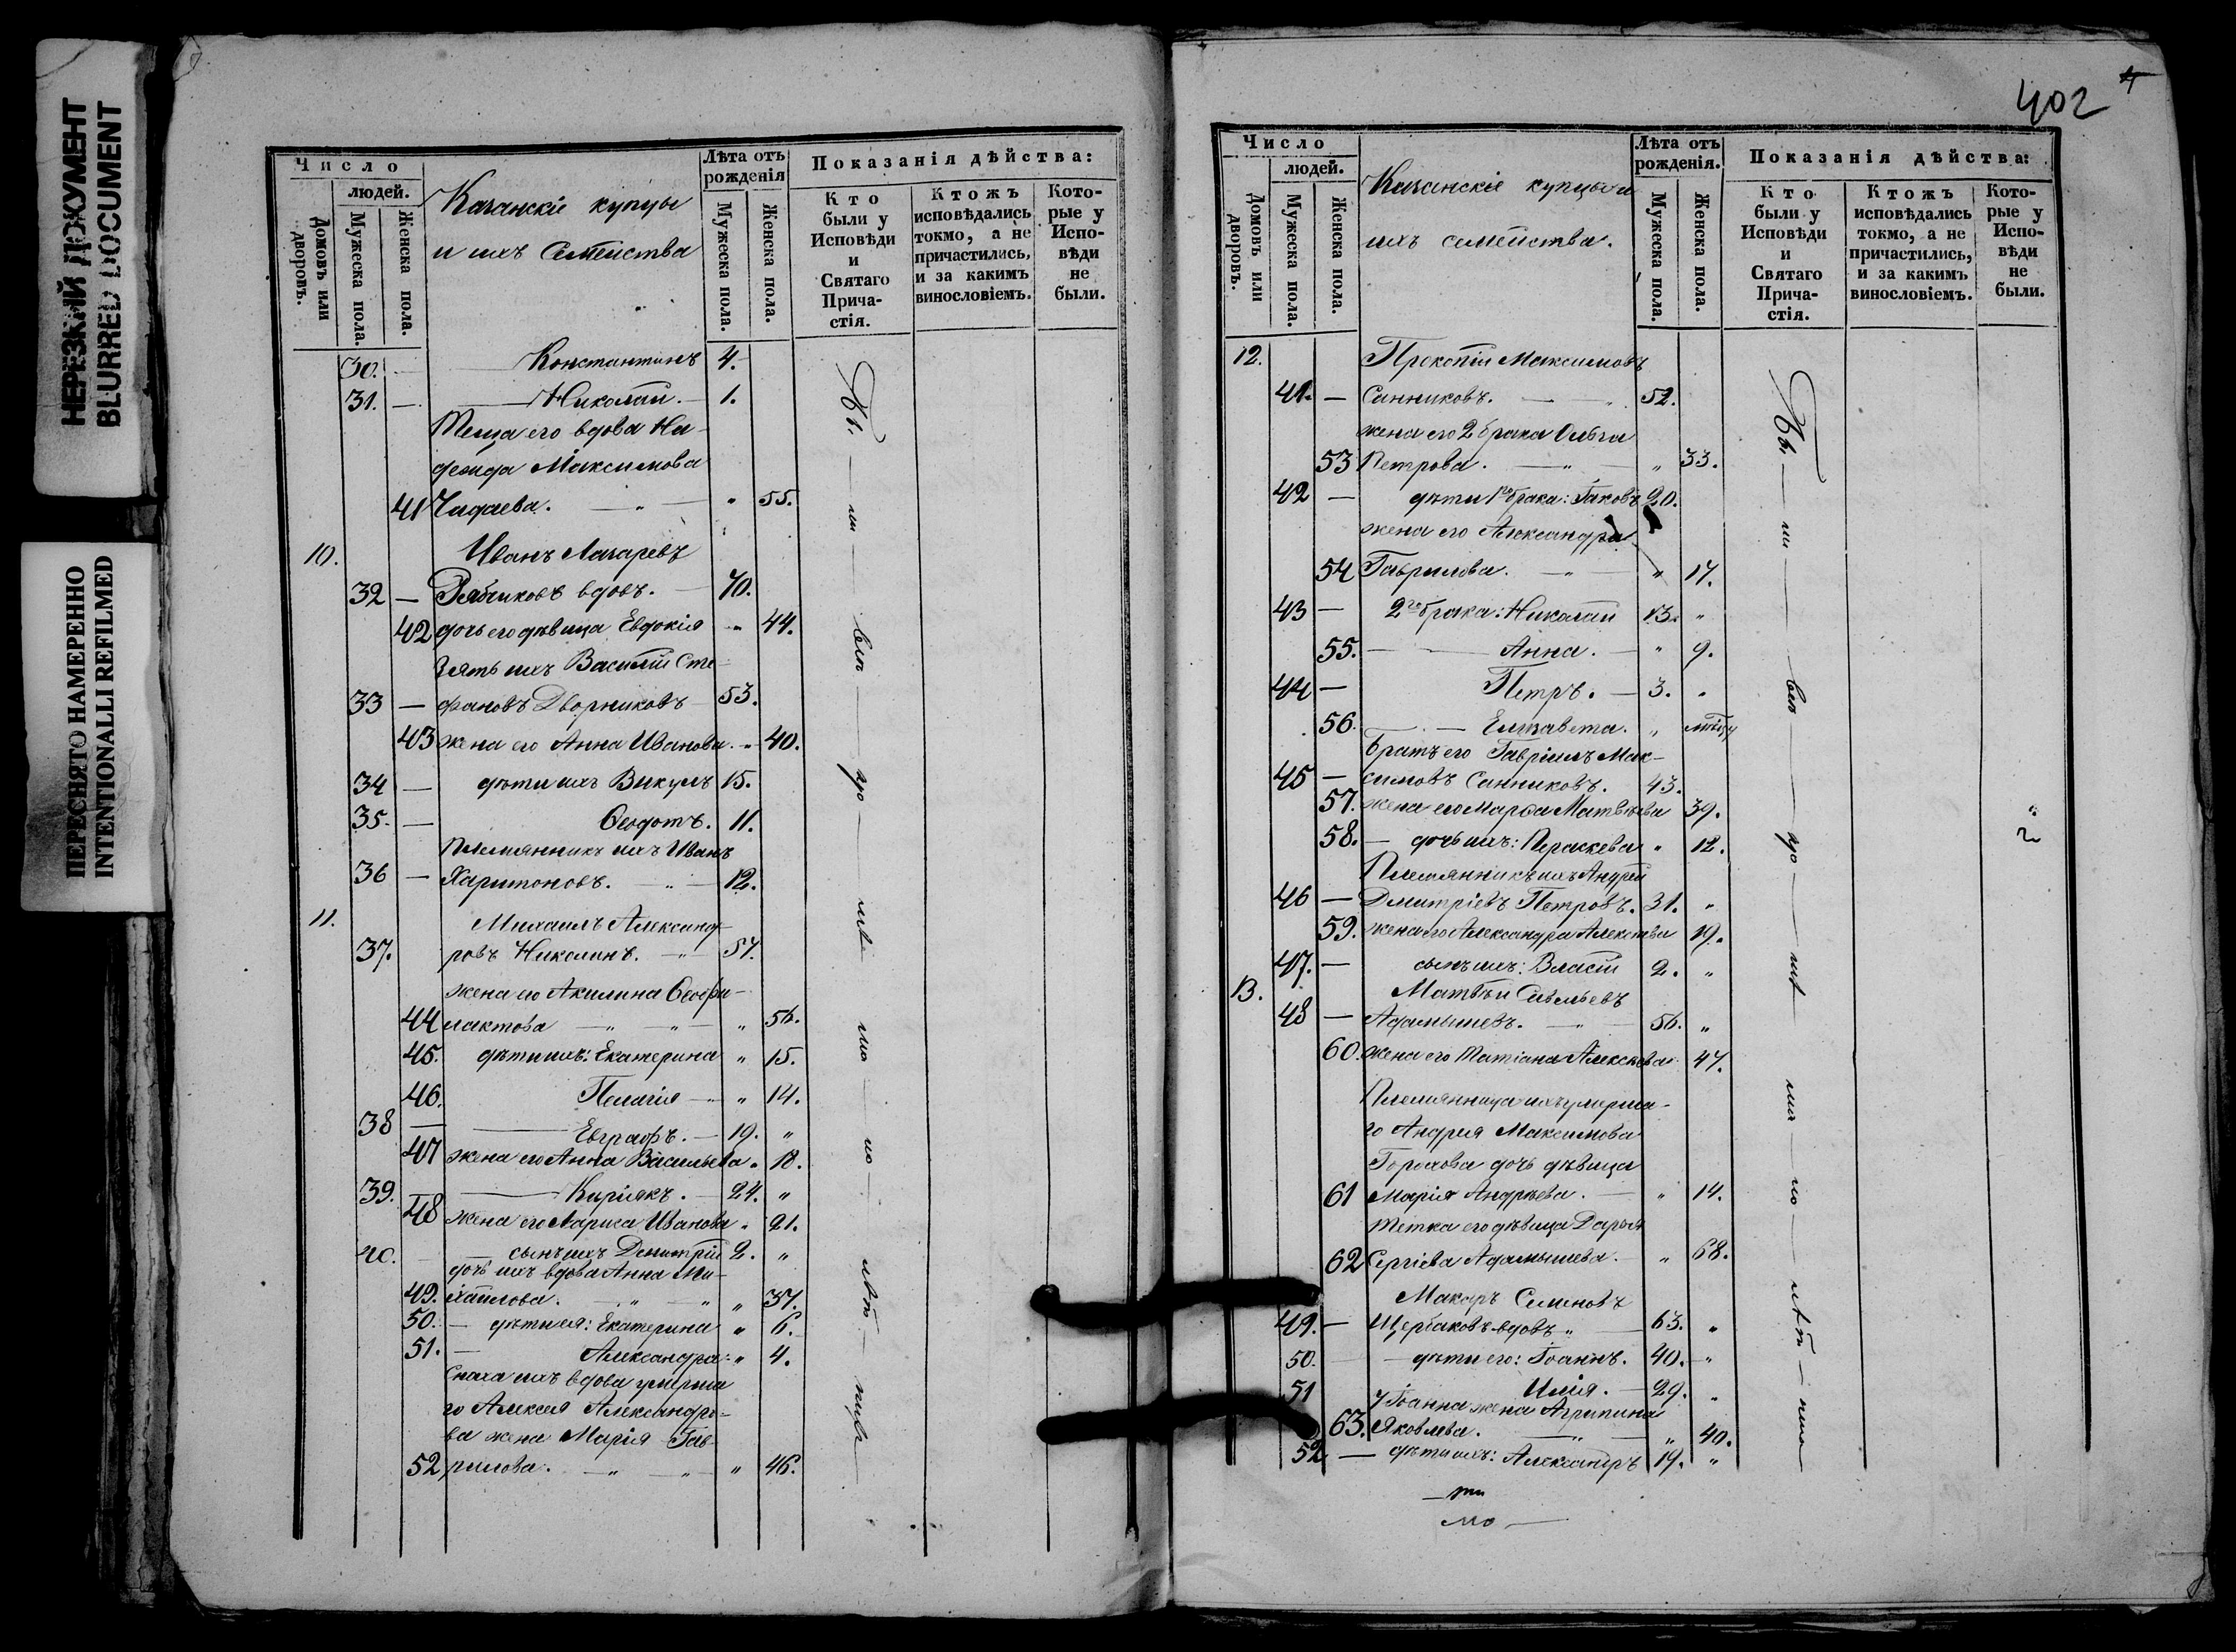 НЕРЕЗКИЙ ДОКУМЕНТ
BLURRED DOCUMENT
ПЕРЕСНЯТО НАМЕРЕННО
INTENTIONALLI REFILMED
Число
людей.
Домовъ или дворовъ.
Мужеска пола.
Женска пола.
Казанскіе купцы
и ихъ Семейства
Лѣта отъ рожденія
Мужеска пола.
Женска пола.
Показанія дѣйства:
Кто были у Исповѣди и Святаго Прича-стія.
Ктожъ исповѣдались токмо, а не причастились, и за какимъ винословіемъ.
Кото-рые у Испо-вѣди не были.
30. — Константинъ 4.
31. — Николай. — 1.
Теща его вдова На-
дежда Максимова
41 Чадаева. — " — " 55.
10. Иванъ Лазаревъ
32 — Рябчиковъ вдовъ. — 70.
42 дочь его дѣвица Евдокія " 44.
Зять ихъ Василій Сте-
33 — фановъ Дворниковъ 53.
43 жена его Анна Иванова. " 40.
34 — дѣти ихъ Викулъ 15.
35. — Ѳеодотъ. 11.
Племянникъ ихъ Иванъ
36 — Харитоновъ. — " — 12.
11. Михаилъ Александ-
37. ровъ Николинъ. — " — 57.
жена его Акилина Ѳеофи-
44 лактова — " — " — " 56.
45. дѣти ихъ: Екатерина " 15.
46. Пелагія — " 14.
38 — Евграфъ. — 19. "
47 жена его Анна Васильева " 18.
39. — Киріякъ. — 24. "
48 жена его Лариса Иванова " 21.
40. — сынъ ихъ Димитрій 2. "
дочь ихъ вдова Анна Ми-
49. хайлова. — " — " " 37.
50. — дѣти ея: Екатерина " 6.
51. — Александра " 4.
Сноха ихъ вдова умерша
го Алексея Александро-
ва жена Марія Гав-
52 рилова. — " — " — " 46.
402
4
Число
людей.
Домовъ или дворовъ.
Мужеска пола.
Женска пола.
Казанскіе купцы и
ихъ семейства.
Лѣта отъ рожденія.
Мужеска пола.
Женска пола.
Показанія дѣйства:
Кто были у Исповѣди и Святаго Прича-стія.
Ктожъ исповѣдались токмо, а не причастились, и за какимъ винословіемъ.
Кото-рые у Испо-вѣди не были.
12. Прокопій Максимовъ
41. — Санниковъ. — " 52.
жена его 2 брака Ольга
53 Петрова. — " — " 33.
42 — дѣти 1го брака: Іаковъ 20.
жена его Александра
54 Гаврилова. — " — " 17.
43 — 2го брака: Николай 13. "
55. — Анна. — " 9.
44 — Петръ. — 3. "
56. — Елизавета. "
братъ его Гавріилъ Мак-
45 — симовъ Санниковъ. 43.
57. жена его Марѳа Матвѣева 39.
58. — дочь ихъ: Параскева " 12.
Племянникъ ихъ Андрей
46 — Димитріевъ Петровъ. 31. "
59. жена его Александра Алексѣева 19.
47. — сынъ ихъ: Власій 2. "
13. Матвѣй Савельевъ
48 — Адамышевъ. — " — 56. "
60. жена его Татіана Алексѣева 47.
Племянница ихъ умерша-
го Андрея Максимова
Горохова дочь дѣвица
61 Марія Андрѣева. — " 14.
тетка его дѣвица Дарья
62 Сергіева Адамышева. — " 68.
Макаръ Семеновъ
49. — Щербаковъ вдовъ " — 63. "
50. — дѣти его: Іоаннъ. 40. "
51 Илія. — 29. "
у Іоанна жена Агрипина
63. Яковлева. — " — " 40.
52 — дѣти ихъ: Александръ 19. "